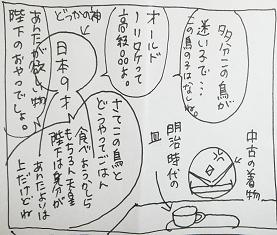 多分この鳥が
迷い子で…
この鳥の子はなしね。
オールド
ノリタケって
高級○○よ。
どっかの神
日本の
あんたが欲しい物
陛下のおやつでしょ。
中古の着物
明治時代の
皿
さてこの鳥と
どうやってごはん
食べおうかしら
もちろん天皇
陛下は身分が
あんたよりは
上だけどね